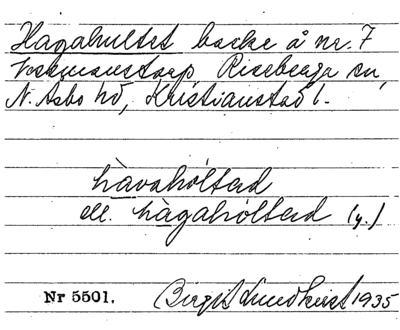 Hagahultet backe å nr. 7
Riseberga sn,
N. Åsbo hd, Kristianstad l.
hàvahóltəd
ell. hàgahóltəd (y.)
Nr 5501. Birgit Lundkvist 1935